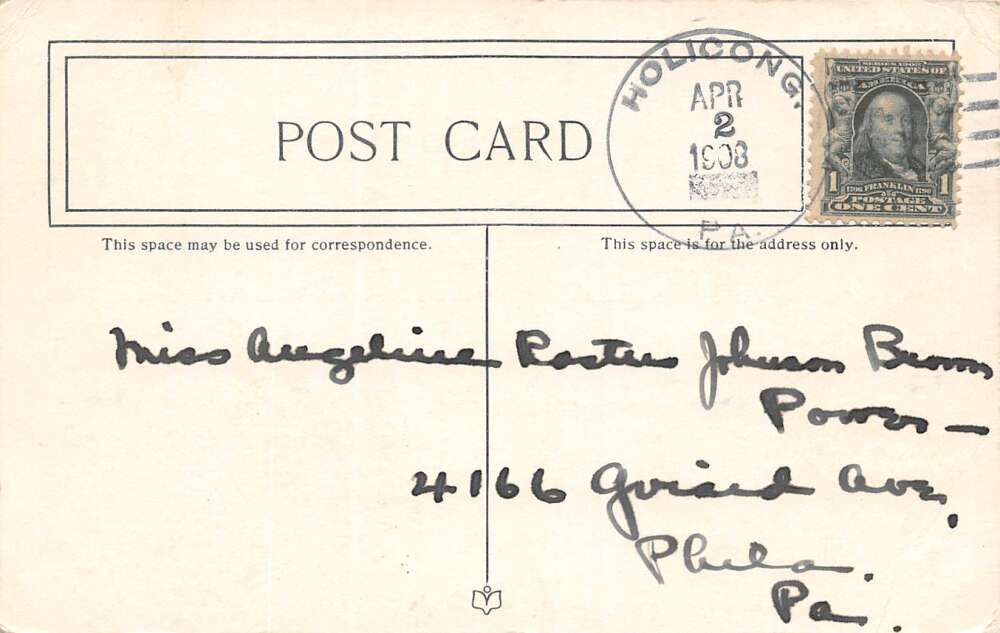 POST CARD
HOLICONG,
APR
2
1908
PA.
SERIES 1902
UNITED STATES OF
AMERICA
1 1706 FRANKLIN 1790 1
POSTAGE
ONE CENT
This space may be used for correspondence.
This space is for the address only.
Miss Angeline Johnson Brown
Powers —
4166 Girard Ave,
Phila.
Pa.